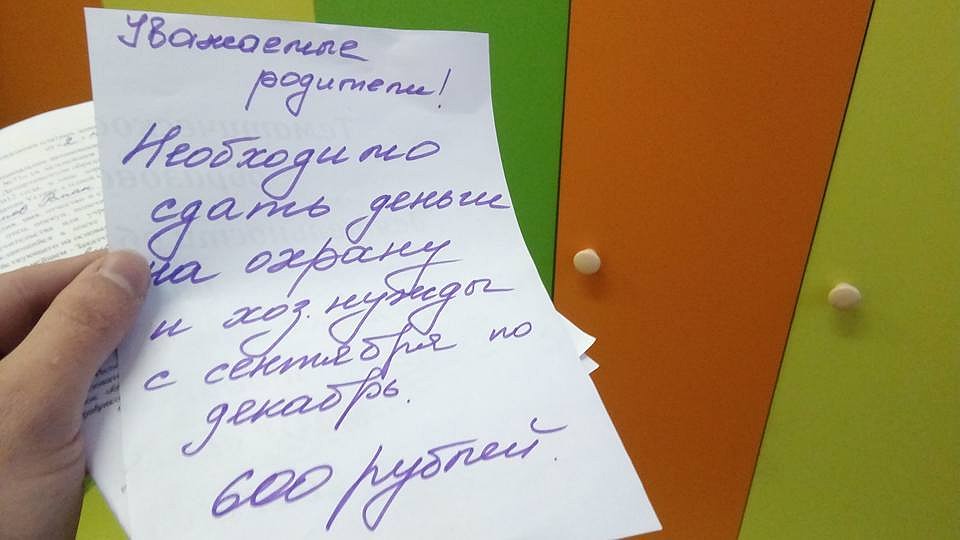 Уважаемые
родители!
Необходимо
сдать деньги
на охрану
и хоз. нужды
с сентября по
декабрь.
600 рублей.